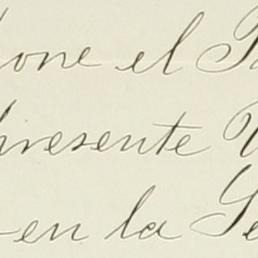 one el
presente
en la Se